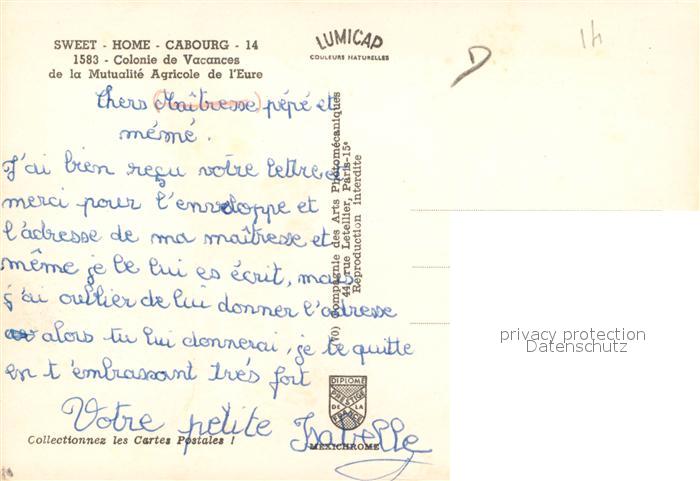 SWEET - HOME - CABOURG - 14
1583 - Colonie de Vacances
de la Mutualité Agricole de l'Eure
LUMICAP
COULEURS NATURELLES
D
14
Chers (Maîtresse) pépé et
mémé.
J'ai bien reçu votre lettre et
merci pour l'enveloppe et
l'adresse de ma maîtresse et
même je le lui es écrit, mais
j'ai oullier de lui donner l'adresse
alors tu lui donnerai, je te quitte
en t'embrassant trés fort
Votre petite Isabelle
(70) Compagnie des Arts Photomécaniques
44, rue Letellier, Paris-15e
Reproduction interdite
privacy protection
Datenschutz
DIPLOME
PRESTIGE
DE LA
FRANCE
MEXICHROME
Collectionnez les Cartes Postales !